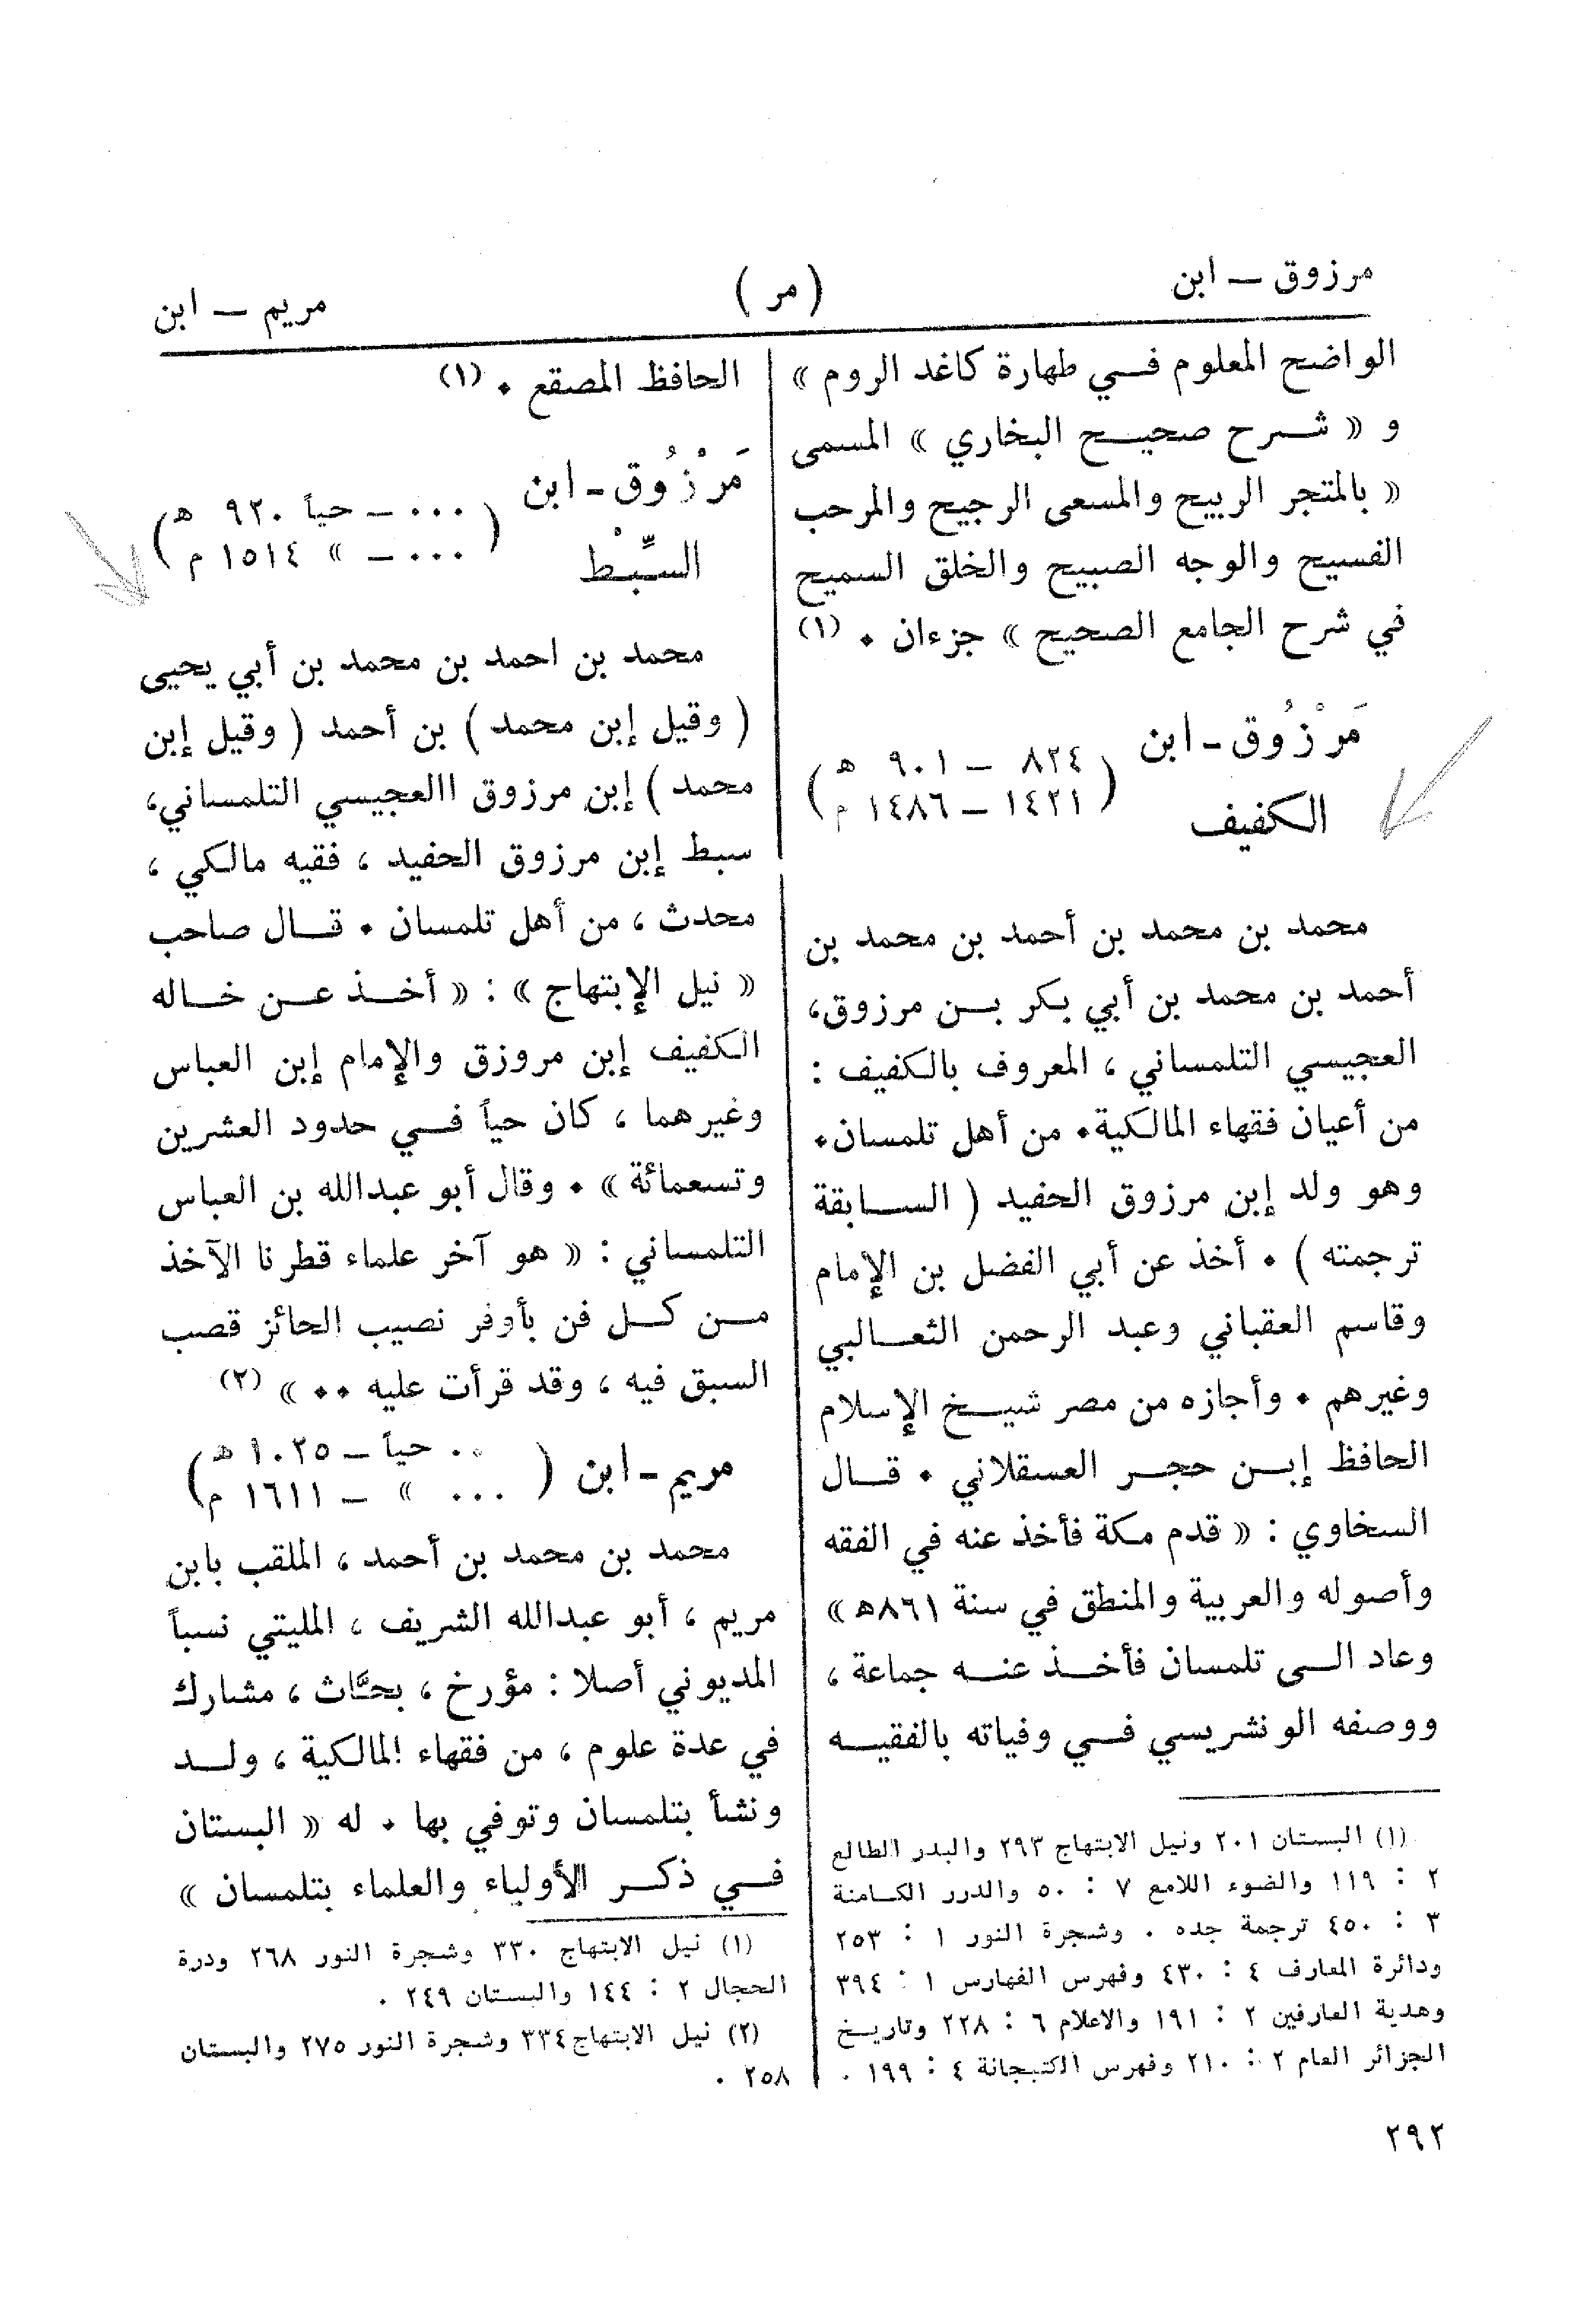 مرزوق — ابن
( مر )
مريم — ابن
الواضح المعلوم فـي طهارة كاغد الروم »
و « شـرح صحيـح البخاري » المسمى
« بالمتجر الربيح والمسعى الرجيح والمرحب
الفسيح والوجه الصبيح والخلق السميح
في شرح الجامع الصحيح » جزءان . (١)
مَرْزُوق - ابن
الكفيف
( ٨٢٤ — ٩٠١ هـ
١٤٢١ — ١٤٨٦ م )
محمد بن محمد بن أحمد بن محمد بن
أحمد بن محمد بن أبي بكر بـن مرزوق،
العجيسي التلمساني ، المعروف بالكفيف :
من أعيان فقهاء المالكية. من أهل تلمسان.
وهو ولد إبن مرزوق الحفيد ( السـابقة
ترجمته ) . أخذ عن أبي الفضل بن الإمام
وقاسم العقباني وعبد الرحمن الثعـالبي
وغيرهم . وأجازه من مصر شيـخ الإسلام
الحافظ إبـن حجـر العسقلاني . قـال
السخاوي : « قدم مكة فأخذ عنه في الفقه
وأصوله والعربية والمنطق في سنة ٨٦١هـ »
وعاد الـى تلمسان فأخـذ عنـه جماعة ،
ووصفه الونشريسي فـي وفياته بالفقيـه
(١) البستان ٢٠١ ونيل الابتهاج ٢٩٣ والبدر الطالع
٢ : ١١٩ والضوء اللامع ٧ : ٥٠ والدرر الكامنة
٣ : ٤٥٠ ترجمة جده . وشجرة النور ١ : ٢٥٣
ودائرة المعارف ٤ : ٤٣٠ وفهرس الفهارس ١ : ٣٩٤
وهدية العارفين ٢ : ١٩١ والاعلام ٦ : ٢٢٨ وتاريـخ
الجزائر العام ٢ : ٢١٠ وفهرس الكتبجانة ٤ : ١٩٩ .
الحافظ المصقع . (١)
مَرْزُوق - ابن
السِّبْط
( ... — حياً ٩٢٠ هـ
... — » ١٥١٤ م )
محمد بن احمد بن محمد بن أبي يحيى
( وقيل إبن محمد ) بن أحمد ( وقيل إبن
محمد ) إبن مرزوق االعجيسي التلمساني،
سبط إبن مرزوق الحفيد ، فقيه مالكي ،
محدث ، من أهل تلمسان . قـال صاحب
« نيل الإبتهاج » : « أخـذ عـن خـاله
الكفيف إبن مروزق والإمام إبن العباس
وغيرهما ، كان حياً فـي حدود العشرين
وتسعمائة » . وقال أبو عبدالله بن العباس
التلمساني : « هو آخر علماء قطرنا الآخذ
مـن كـل فن بأوفر نصيب الحائز قصب
السبق فيه ، وقد قرأت عليه .. » (٢)
مريم - ابن
( .. حياً — ١٠٢٥ هـ
... » — ١٦١١ م )
محمد بن محمد بن أحمد ، الملقب بابن
مريم ، أبو عبدالله الشريف ، المليتي نسباً
المديوني أصلا : مؤرخ ، بحَّاث ، مشارك
في عدة علوم ، من فقهاء المالكية ، ولـد
ونشأ بتلمسان وتوفي بها . له « البستان
فـي ذكـر الأولياء والعلماء بتلمسان »
(١) نيل الابتهاج ٣٣٠ وشجرة النور ٢٦٨ ودرة
الحجال ٢ : ١٤٤ والبستان ٢٤٩ .
(٢) نيل الابتهاج ٣٣٤ وشجرة النور ٢٧٥ والبستان
٢٥٨ .
٢٩٢